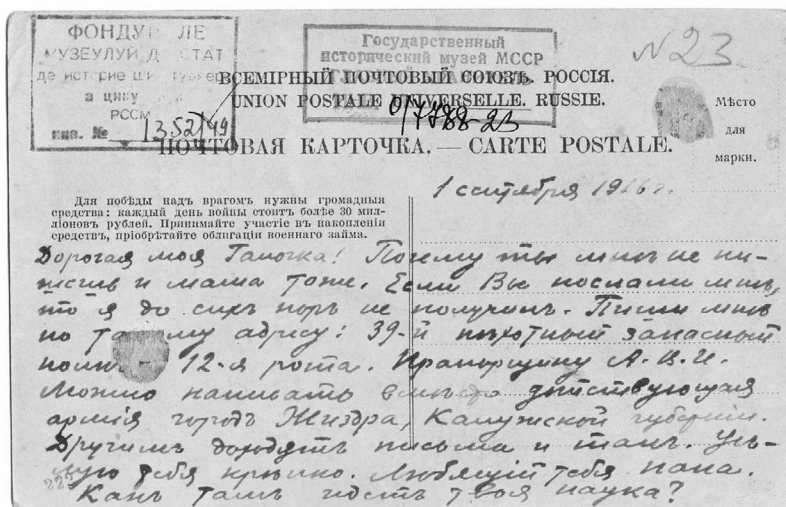 ФОНДУЛ ДЕ
МУЗЕУЛУЙ Д СТАТ
де историе ши
а цику
РССМ
инв. № 1352/49
Государственный
исторический музей МССР
№ 23
ВСЕМІРНЫЙ ПОЧТОВЫЙ СОЮЗЪ. РОССІЯ.
UNION POSTALE UNIVERSELLE. RUSSIE.
0/7788-23
Мѣсто
для
марки.
ПОЧТОВАЯ КАРТОЧКА. — CARTE POSTALE.
1 сентября 1916 г.
Для побѣды надъ врагомъ нужны громадныя
средства: каждый день войны стоитъ болѣе 30 мил-
ліоновъ рублей. Принимайте участіе въ накопленіи
средствъ, пріобрѣтайте облигаціи военнаго займа.
Дорогая моя Галочка! Почему ты мнѣ не пи-
шешь и мама тоже. Если Вы послали мнѣ,
то я до сихъ поръ не получилъ. Пиши мнѣ
по такому адресу: 39-й пѣхотный запасный
полкъ 12-я рота. Прапорщику А.В.И.
Можно написать вмѣсто дѣйствующая
армія городъ Жиздра, Калужской губерніи.
Другимъ доходятъ письма и такъ. Цѣ-
лую тебя крѣпко. Любящій тебя папа.
Какъ тамъ идетъ твоя наука?